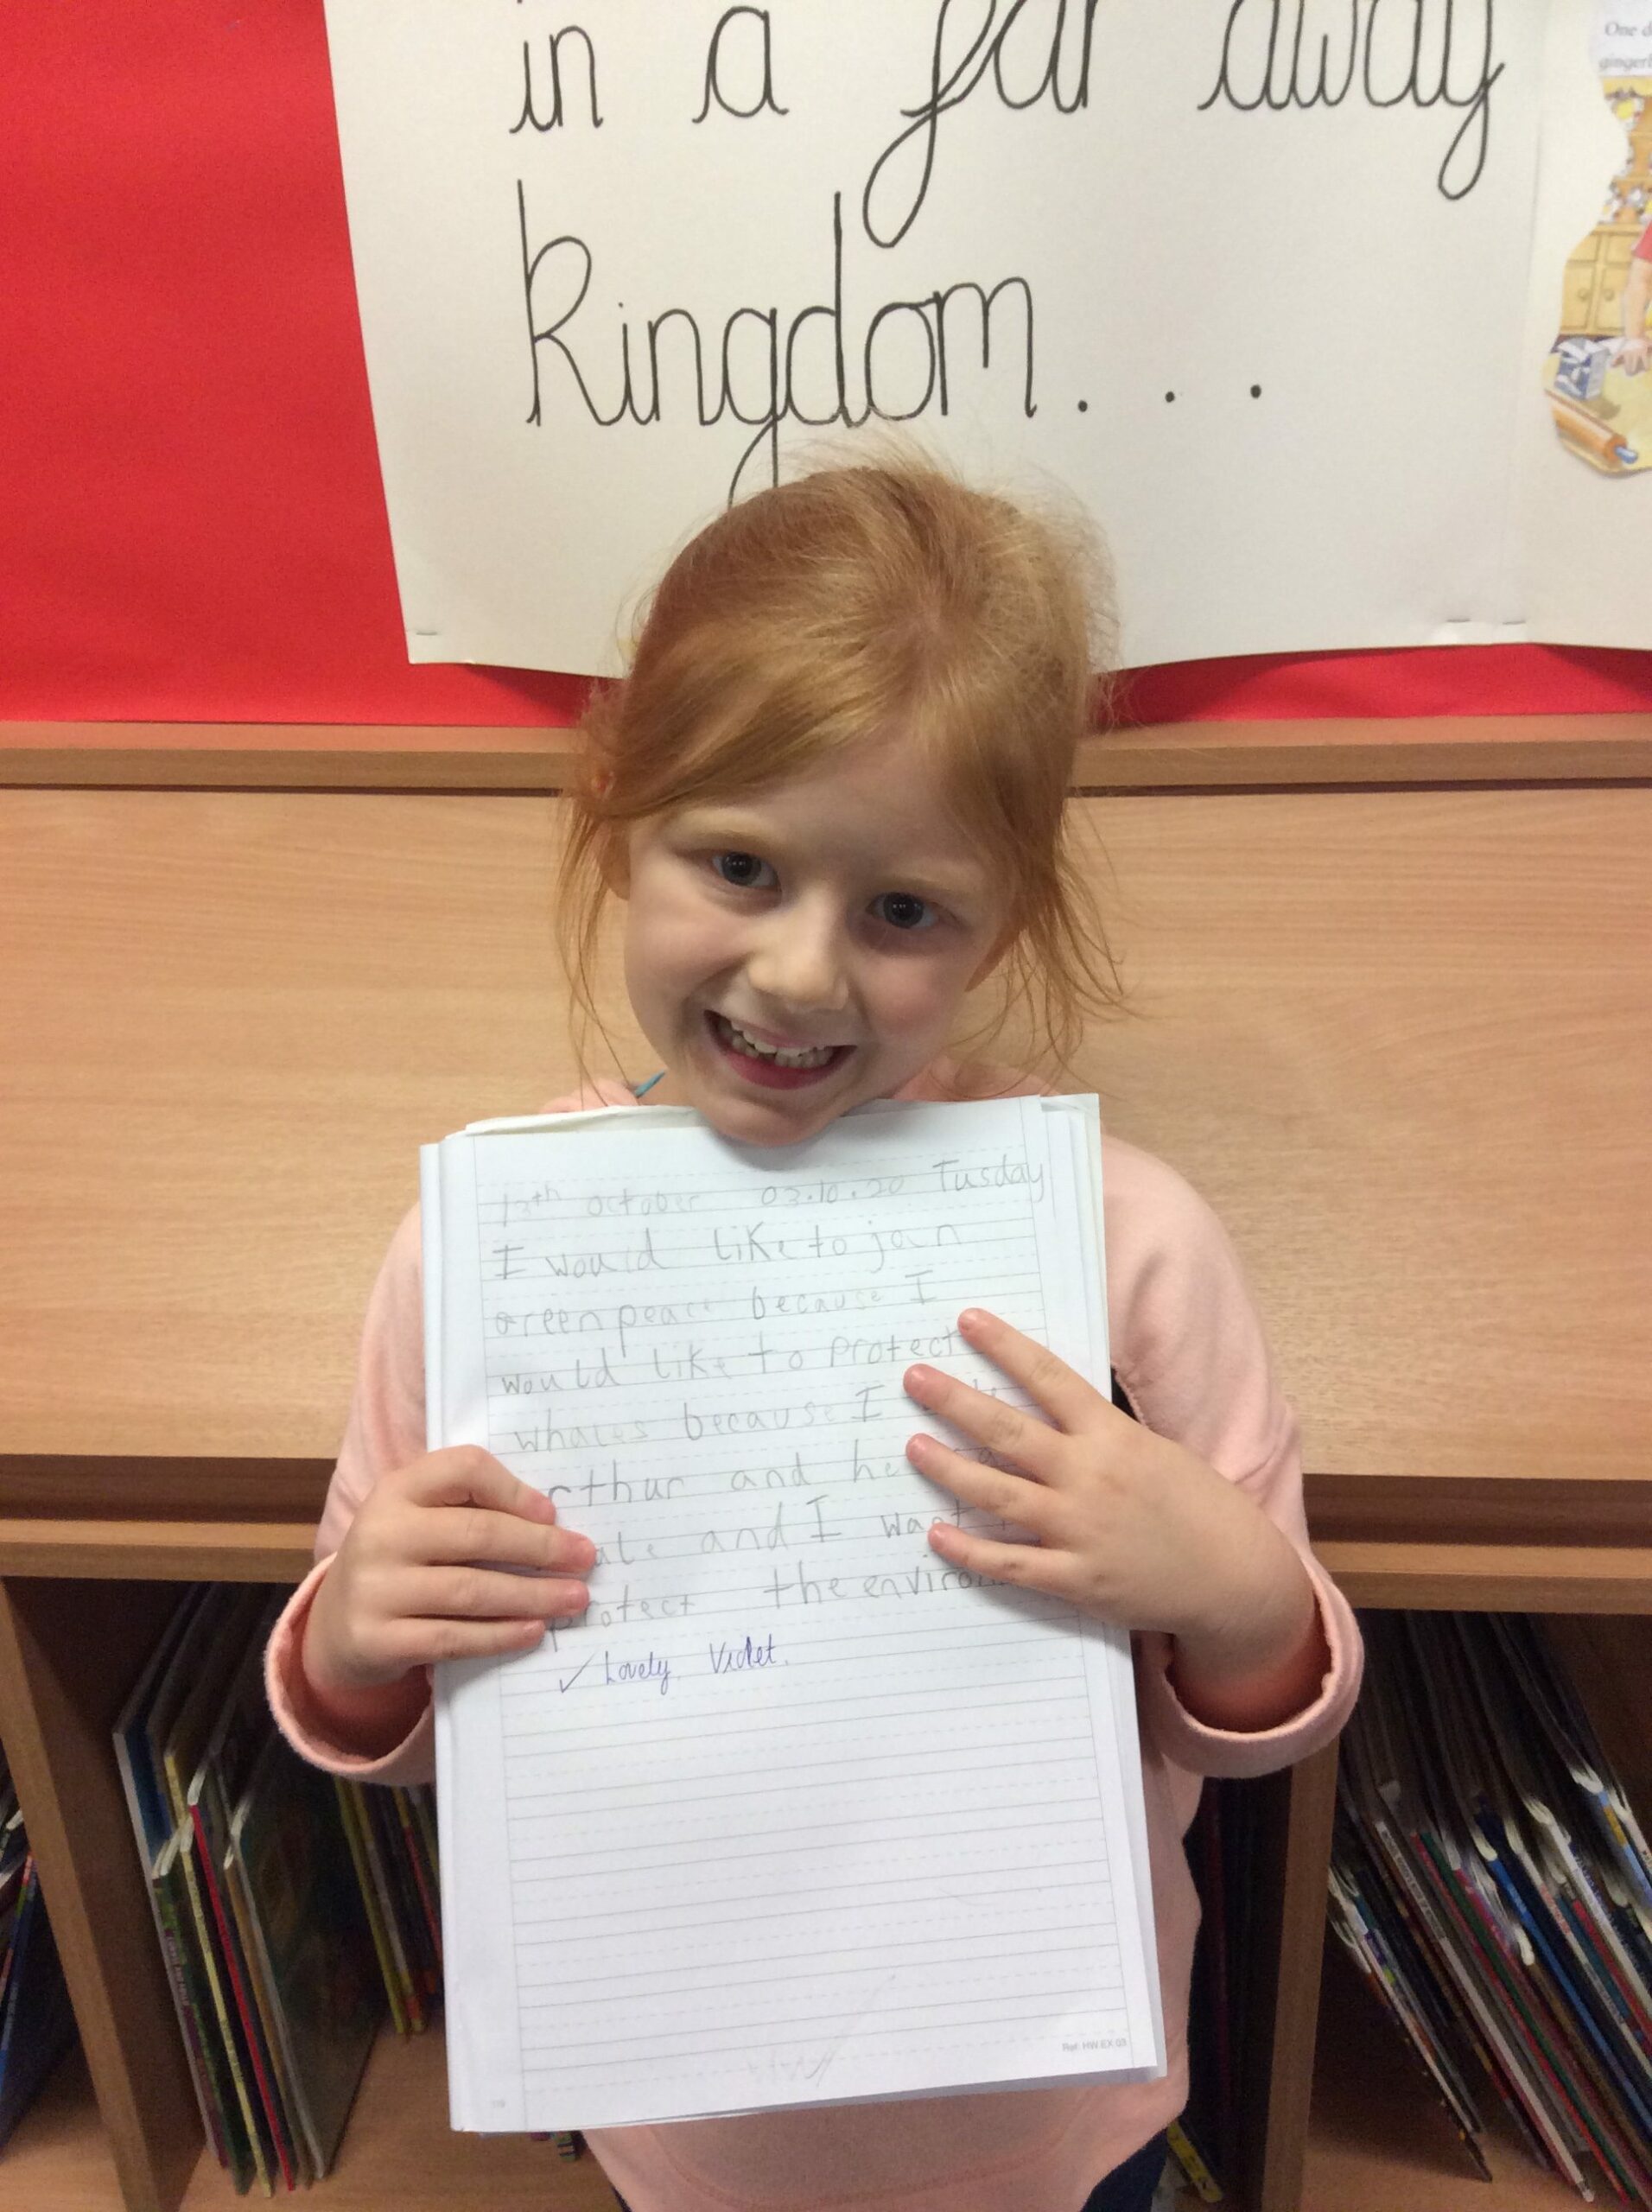 in a far away
kingdom...
One d
gingerb
13th October 03.10.20 Tusday
I would like to join
Greenpeace because I
would like to protect
whales because I
rthur and he a
ale and I want
protect the enviro
✓ Lovely Violet.
Ref: HW EX 03